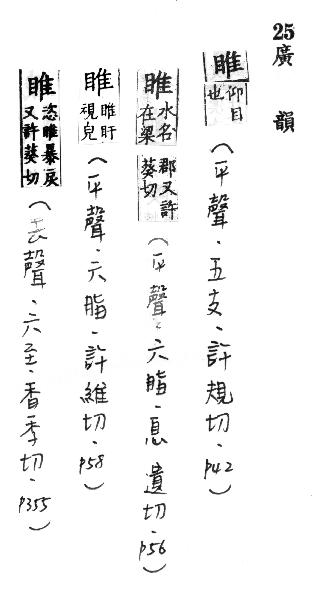 25廣韻
睢仰目也（平聲．五支．許規切．p42）
睢水名在梁郡又許葵切（平聲．六脂．息遺切．p56）
睢睢盱視皃（平聲．六脂．許維切．p58）
睢恣睢暴戾又許葵切（去聲．六至．香季切．p355）